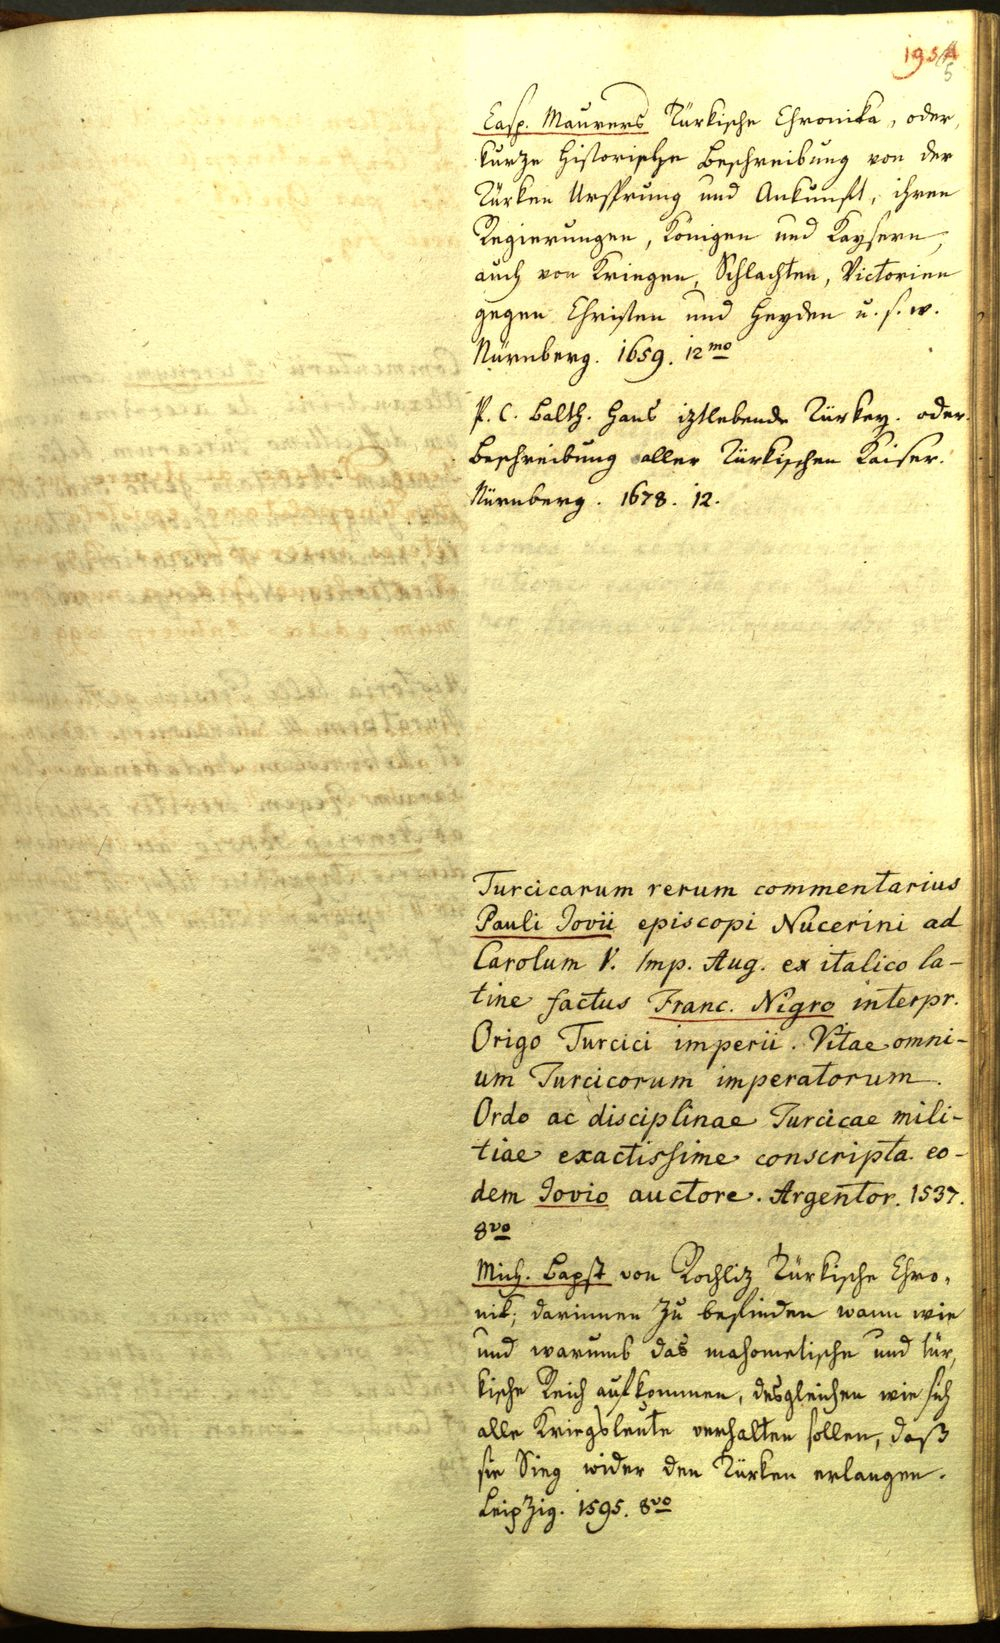 195
5
Casp. Maurers Türkische Chronika, oder
kurze Historische Beschreibung von der
Türken Ursprung und Ankunfft, ihren
Regierungen, Königen und Kaysern,
auch von Kriegen, Schlachten, Victorien
gegen Christen und Heyden u. s. w.
Nürnberg. 1659. 12mo
P. C. Balth. Hans iztlebende Türkey. oder
Beschreibung aller Türkischen Kaiser.
Nürnberg. 1678. 12.
Turcicarum rerum commentarius
Pauli Jovii episcopi Nucerini ad
Carolum V. Imp. Aug. ex italico la-
tine factus Franc. Nigro interpr.
Origo Turcici imperii. Vitae omni-
um Turcicorum imperatorum.
Ordo ac disciplinae Turcicae mili-
tiae exactissime conscripta eo-
dem Jovio auctore. Argentor. 1537.
8vo
Mich. Bapst von Rochliz Türkische Chro-
nik; darinnen zu befinden wann wie
und warumb das mahometische und tür-
kische Reich aufkommen, desgleichen wie sich
alle Kriegsleute verhalten sollen, daß
sie Sieg wider den Türken erlangen.
Leipzig. 1595. 8vo